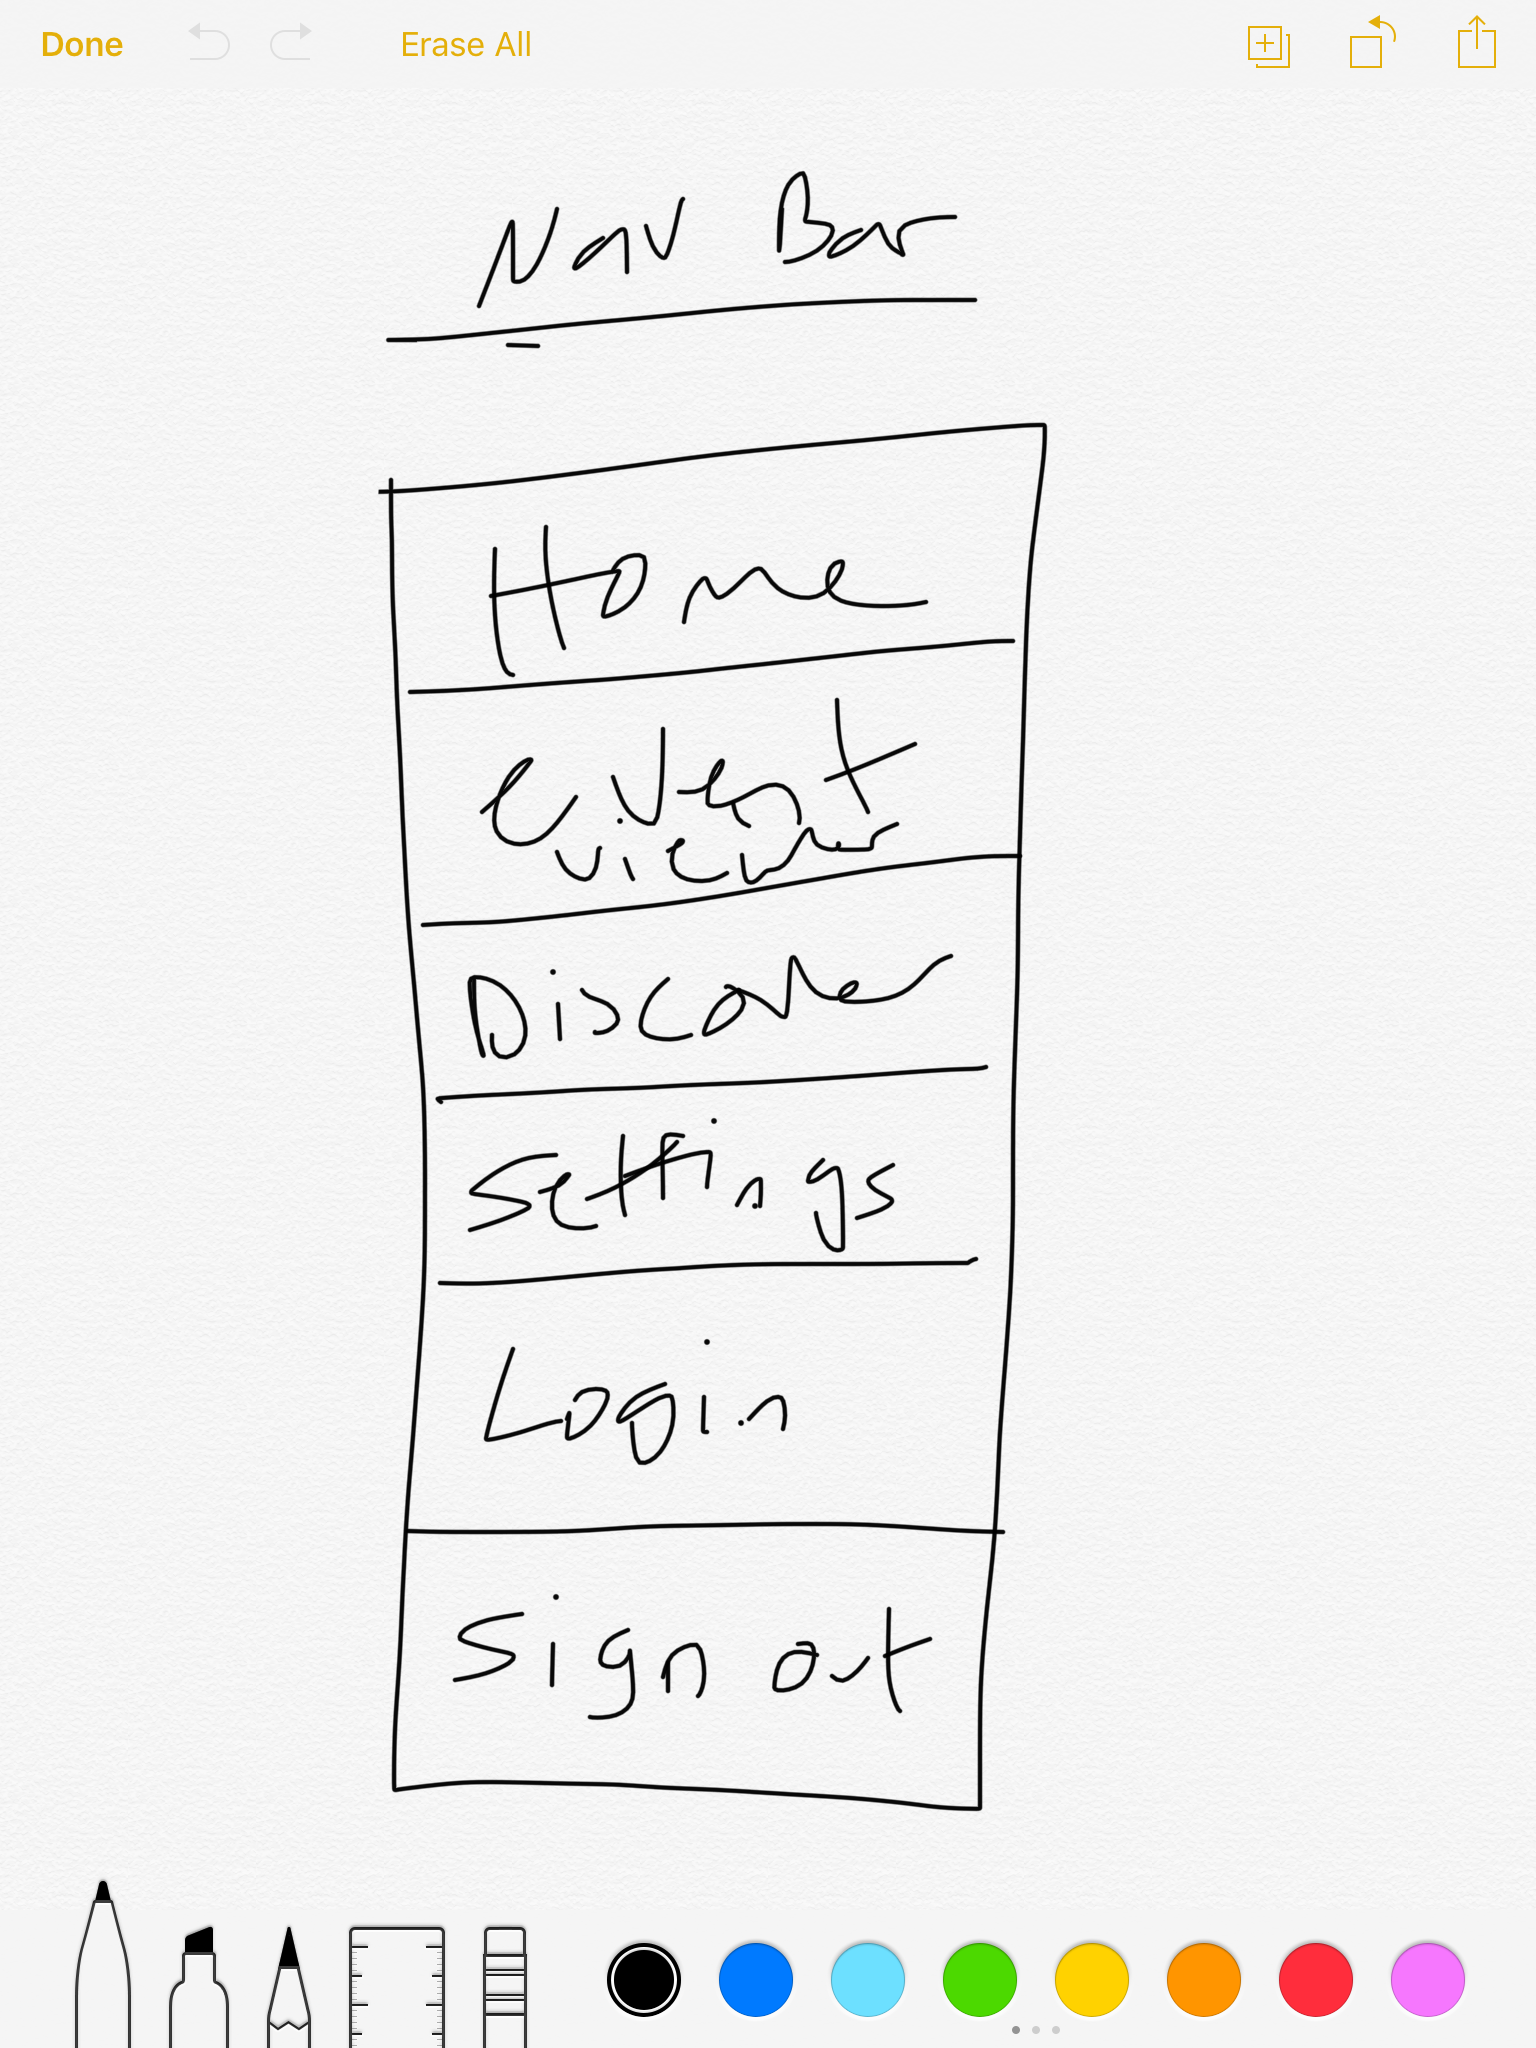 Done Erase All
Nav Bar
Home
Event
viewer
Discover
Settings
Login
Sign out